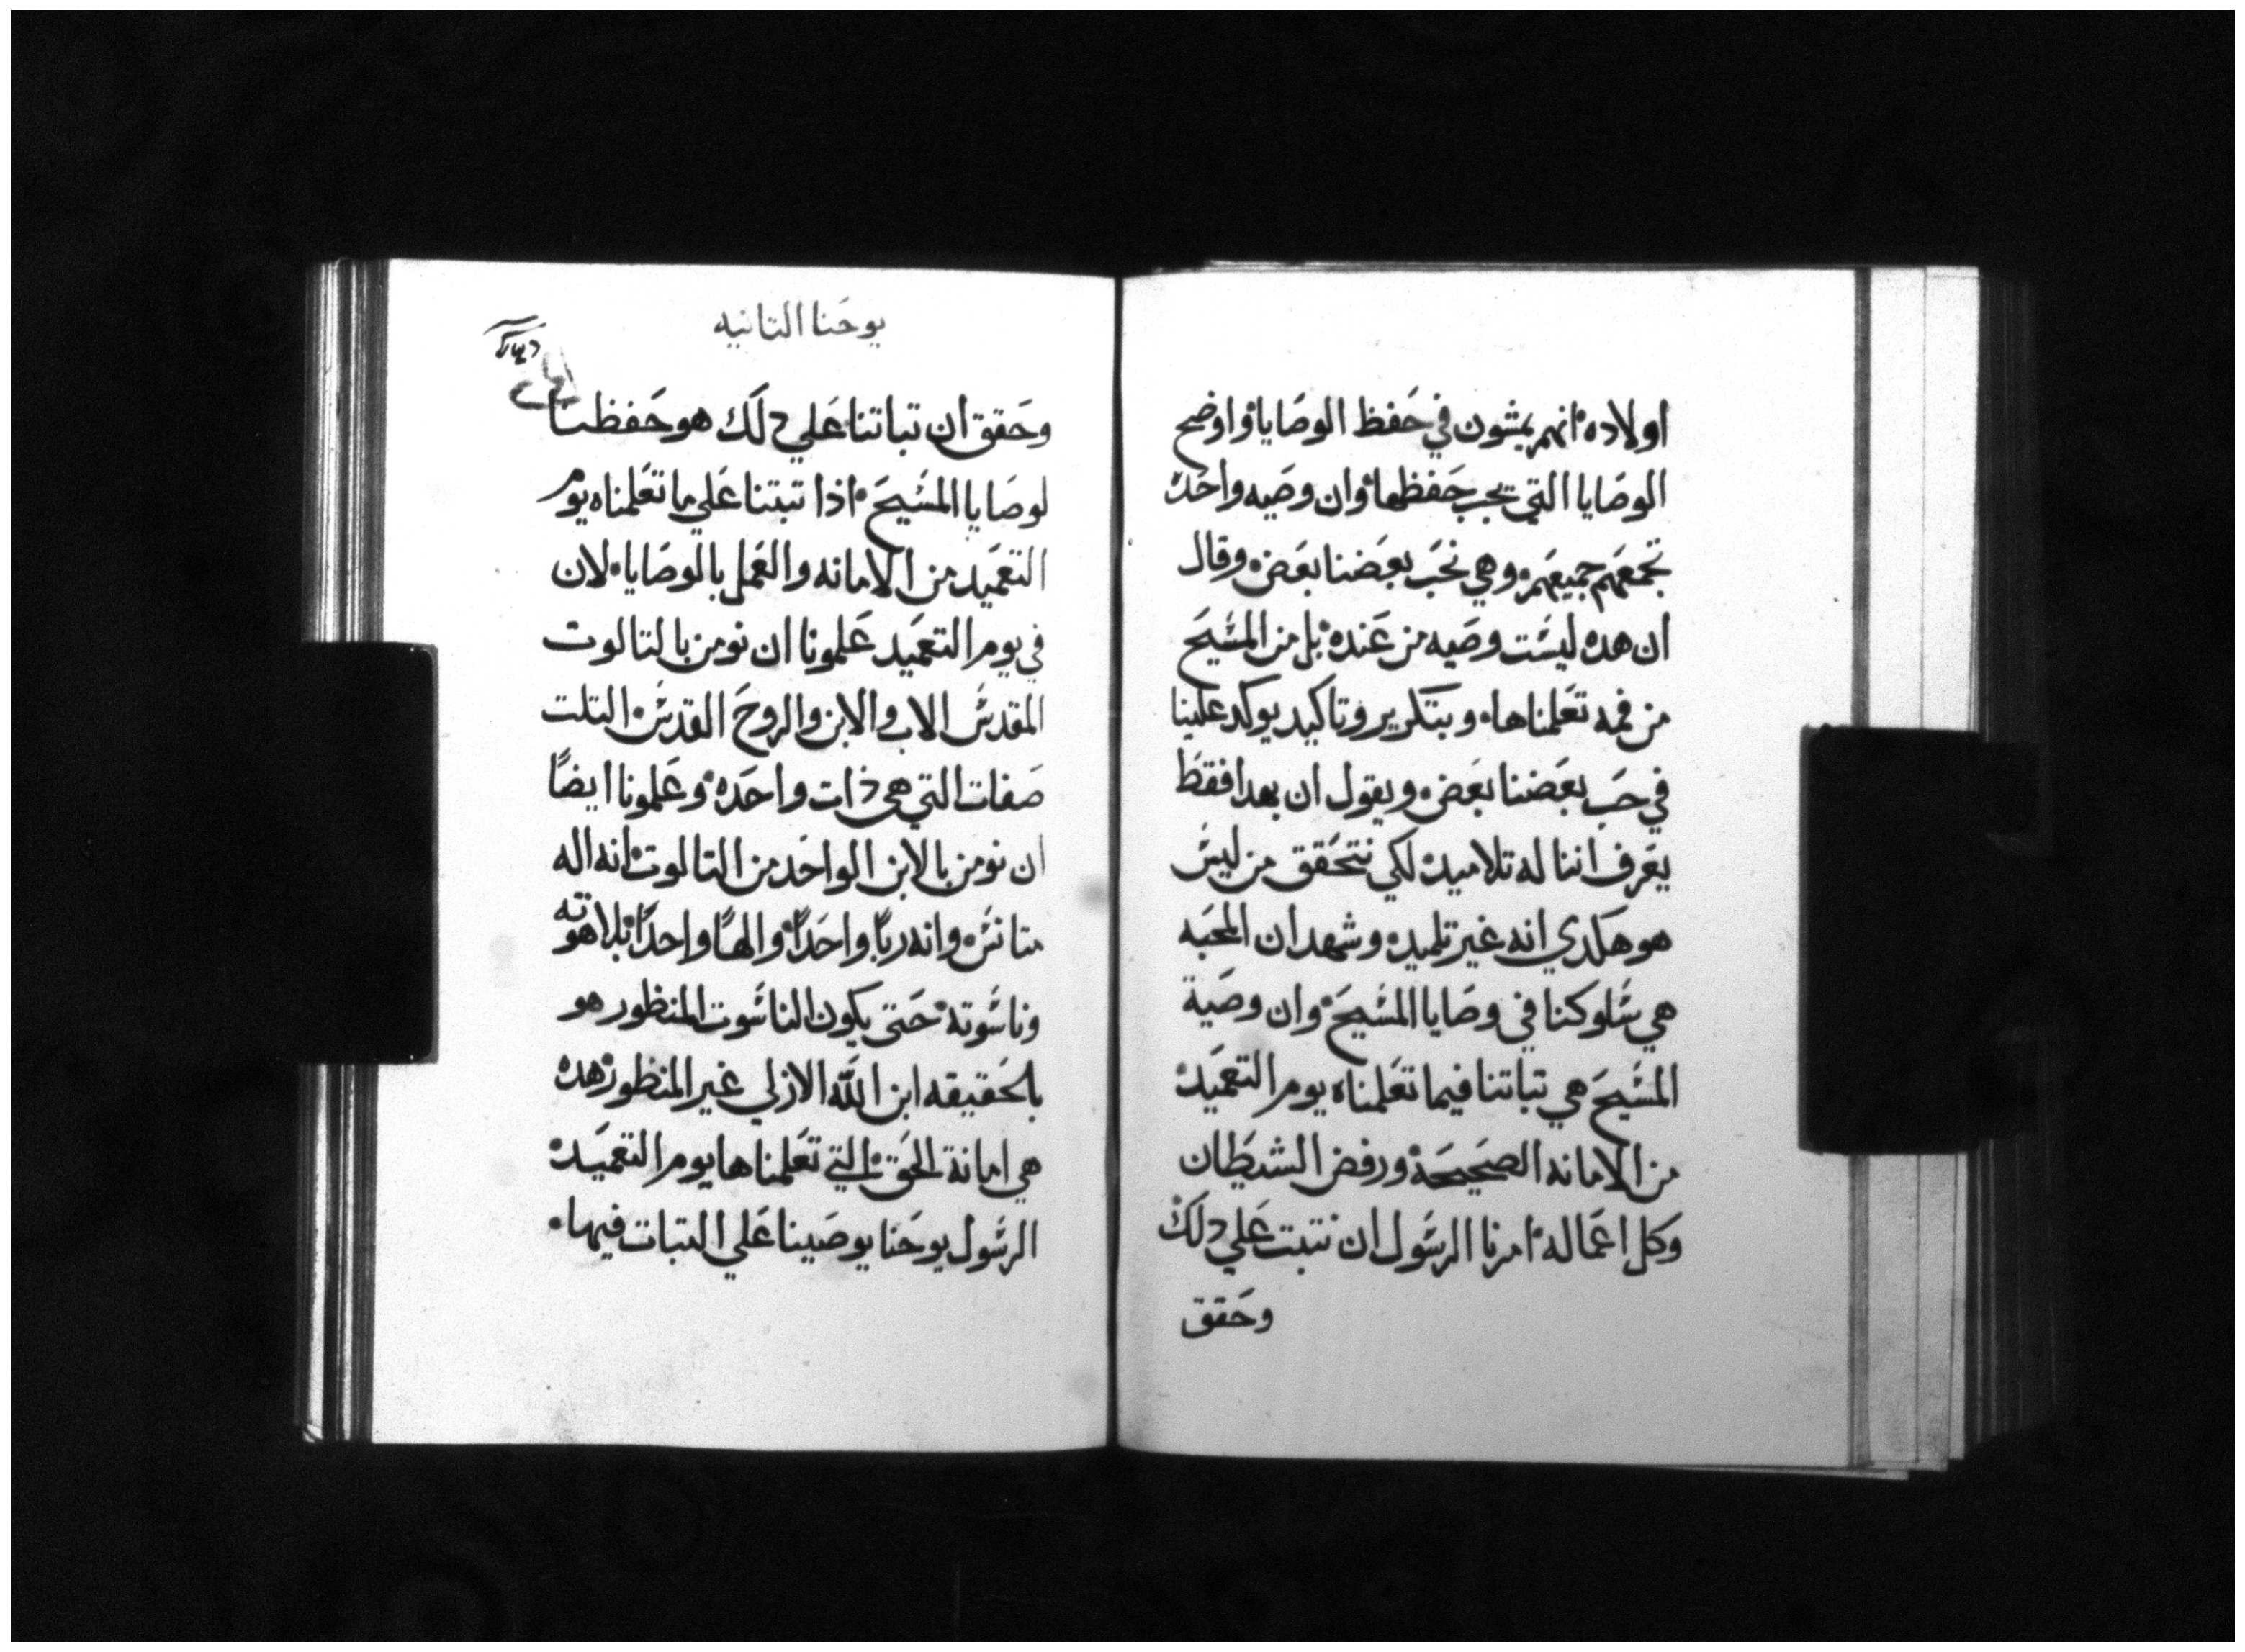 اولاده انهم يمشون في حَفظ الوصَايا واوضح
الوصَايا التي يجب حَفظها وان وصَيه واحَده
تجمعَهم جميعَهم وهي نحَب بعَضنا بعَض وقال
ان هده ليسَت وصَيه من عَنده بل من المسَيحَ
من فمه تعَلمناها وبتكرير وتاكيد يوكد علينا
في حَب بعَضنا بعَض ويقول ان بهدا فقطَ
يعَرف اننا له تلاميد لكي نتحَقق من ليسَ
هو هَكدي انه غير تلميده وشهد ان المحَبه
هي سَلوكنا في وصَايا المسَيحَ وان وصَية
المسَيحَ هي تباتنا فيما تعَلمناه يوم التعَميَد
من الامانه الصحَيحَه ورفض الشيطَان
وكل اعَماله امرنا الرسَول ان نتبت عَلي دلك
وحَقق
يوحَنا التانيه
وحَقق ان تباتنا عَلي دلَك هو حَفظنا
لوصَايا المسَيحَ اذا تبتنا عَلي ما تعَلمناه يوم
التعَميَد من الامانه والعَمل بالوصَايا لان
في يوم التعَميَد عَلمونا ان نومن بالتالوت
المقدسَ الاب والابن والروحَ القدسَ التلت
صَفات التي هي ذات واحَده وعَلمونا ايضًا
ان نومن بالابن الواحَد من التالوت انه اله
متانسَ وانه ربًا واحَدًا والهًا واحدًا بلاهوته
وناسَوته حَتى يكون الناسَوت المنظور هو
بالحَقيقه ابن اللّه الازلي غير المنظور هده
هي امانة الحَق التي تعَلمناها يوم التعَميَد
الرسَول يوحَنا يوصَينا عَلي التبات فيها